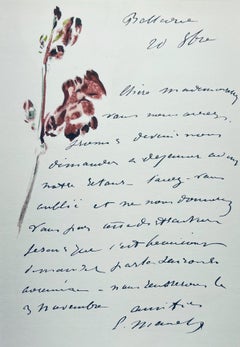 Bellevue
20 8bre
Chère mademoiselle
vous nous aviez
promis de venir nous
demander à déjeuner avant
notre retour - l'avez-vous
oublié et ne nous donnerez
vous pas cette
je sais que c'est beaucoup
demander par la saison
nous rentrerons le
3 novembre amitiés
E. Manet